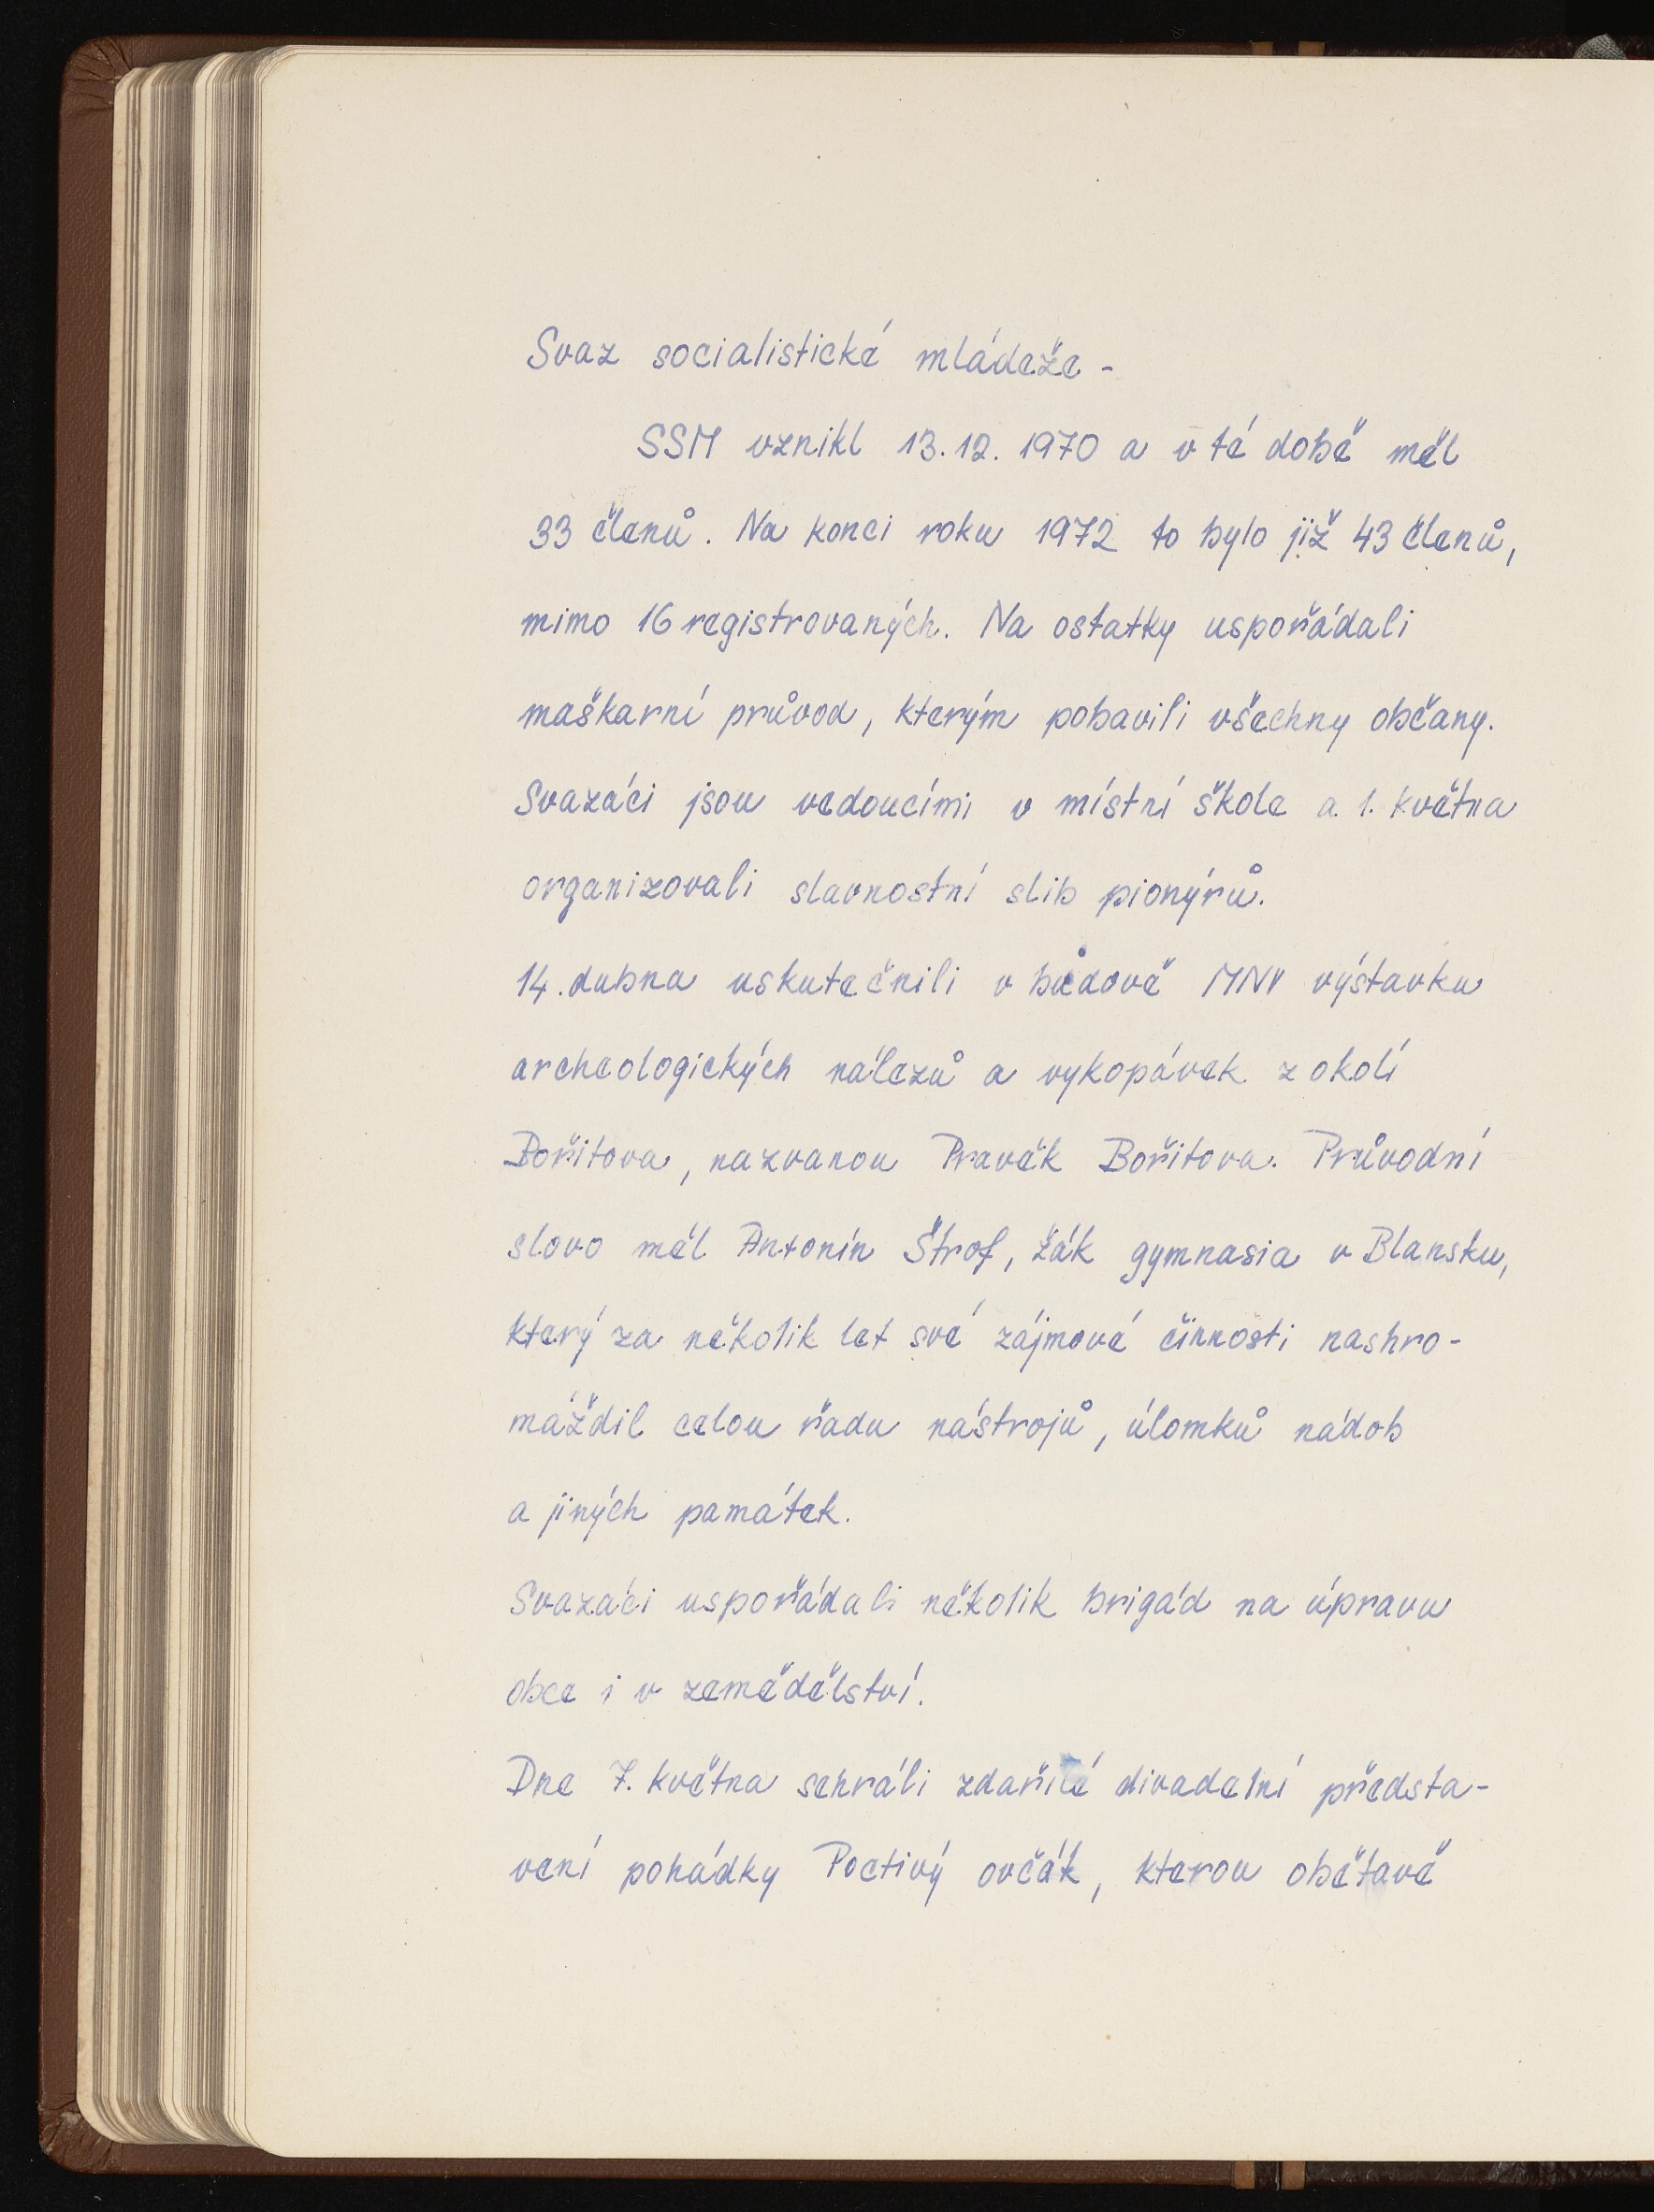 Svaz socialistické mládeže -
SSM vznikl 13.12. 1970 a v té době měl
33 členů. Na konci roku 1972 to bylo již 43 členů,
mimo 16 registrovaných. Na ostatky uspořádali
maškarní průvod, kterým pobavili všechny občany.
Svazáci jsou vedoucími v místní škole a 1. května
organizovali slavnostní slib pionýrů.
14. dubna uskutečnili v budově MNV výstavku
archeologických nálezů a vykopávek z okolí
Bořitova, nazvanou Pravěk Bořitova. Průvodní
slovo měl Antonín Štrof, žák gymnasia v Blansku,
který za několik let své zájmové činnosti nashro-
máždil celou řadu nástrojů, úlomků nádob
a jiných památek.
Svazáci uspořádali několik brigád na úpravu
obce i v zemědělství.
Dne 7. května sehráli zdařilé divadelní předsta-
vení pohádky Poctivý ovčák, kterou obětavě